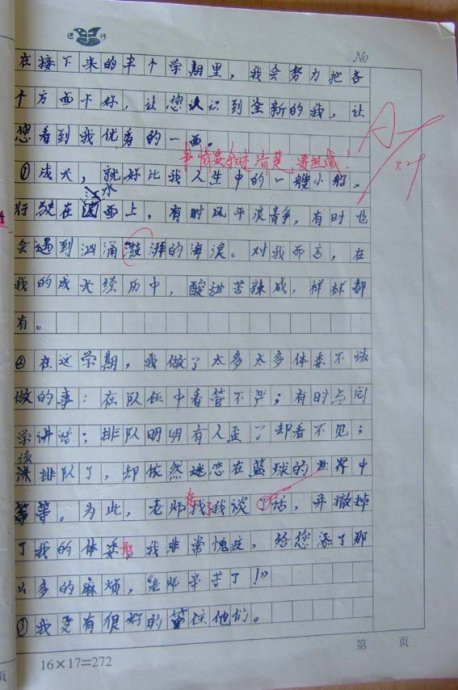 No
在接下来的半个学期里，我会努力把各
个方面卡好，让您认识到全新的我，让
您看到我优秀的一面。
事情要叙述清楚
A+
3.29
①成长，就好比我人生中的一艘小船，
水
行驶在面上，有时风平浪静，有时也
会遇到汹涌澎湃的海浪。对我而言，在
我的成长经历中，酸甜苦辣咸，样样都
有。
②在这学期，我做了太多太多体委不该
做的事：在队伍中看管不严；有时与同
学讲话；排队明明有人歪了却看不见；
该排队了，却依然迷恋在篮球的世界中
等等。为此，老师找我谈了话，并撤掉
了我的体委 我非常愧疚，给您添了那
么多的麻烦，老师辛苦了！
①我更有很好的管住他们。
16×17=272
第 页